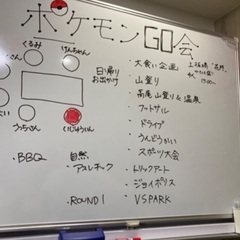 ポケモンGO会
くるみ
けんちゃん
さい
うっちさん
くいじゅういち
日帰り
お出かけ
・大食い企画
・山登り
・高尾山登り&温泉
・フットサル
・ドライブ
・うんどうかい
・スポーツ大会
・トリックアート
・ジョイポリス
・VSPARK
・BBQ
・自然
・アスレチック
・ROUND1